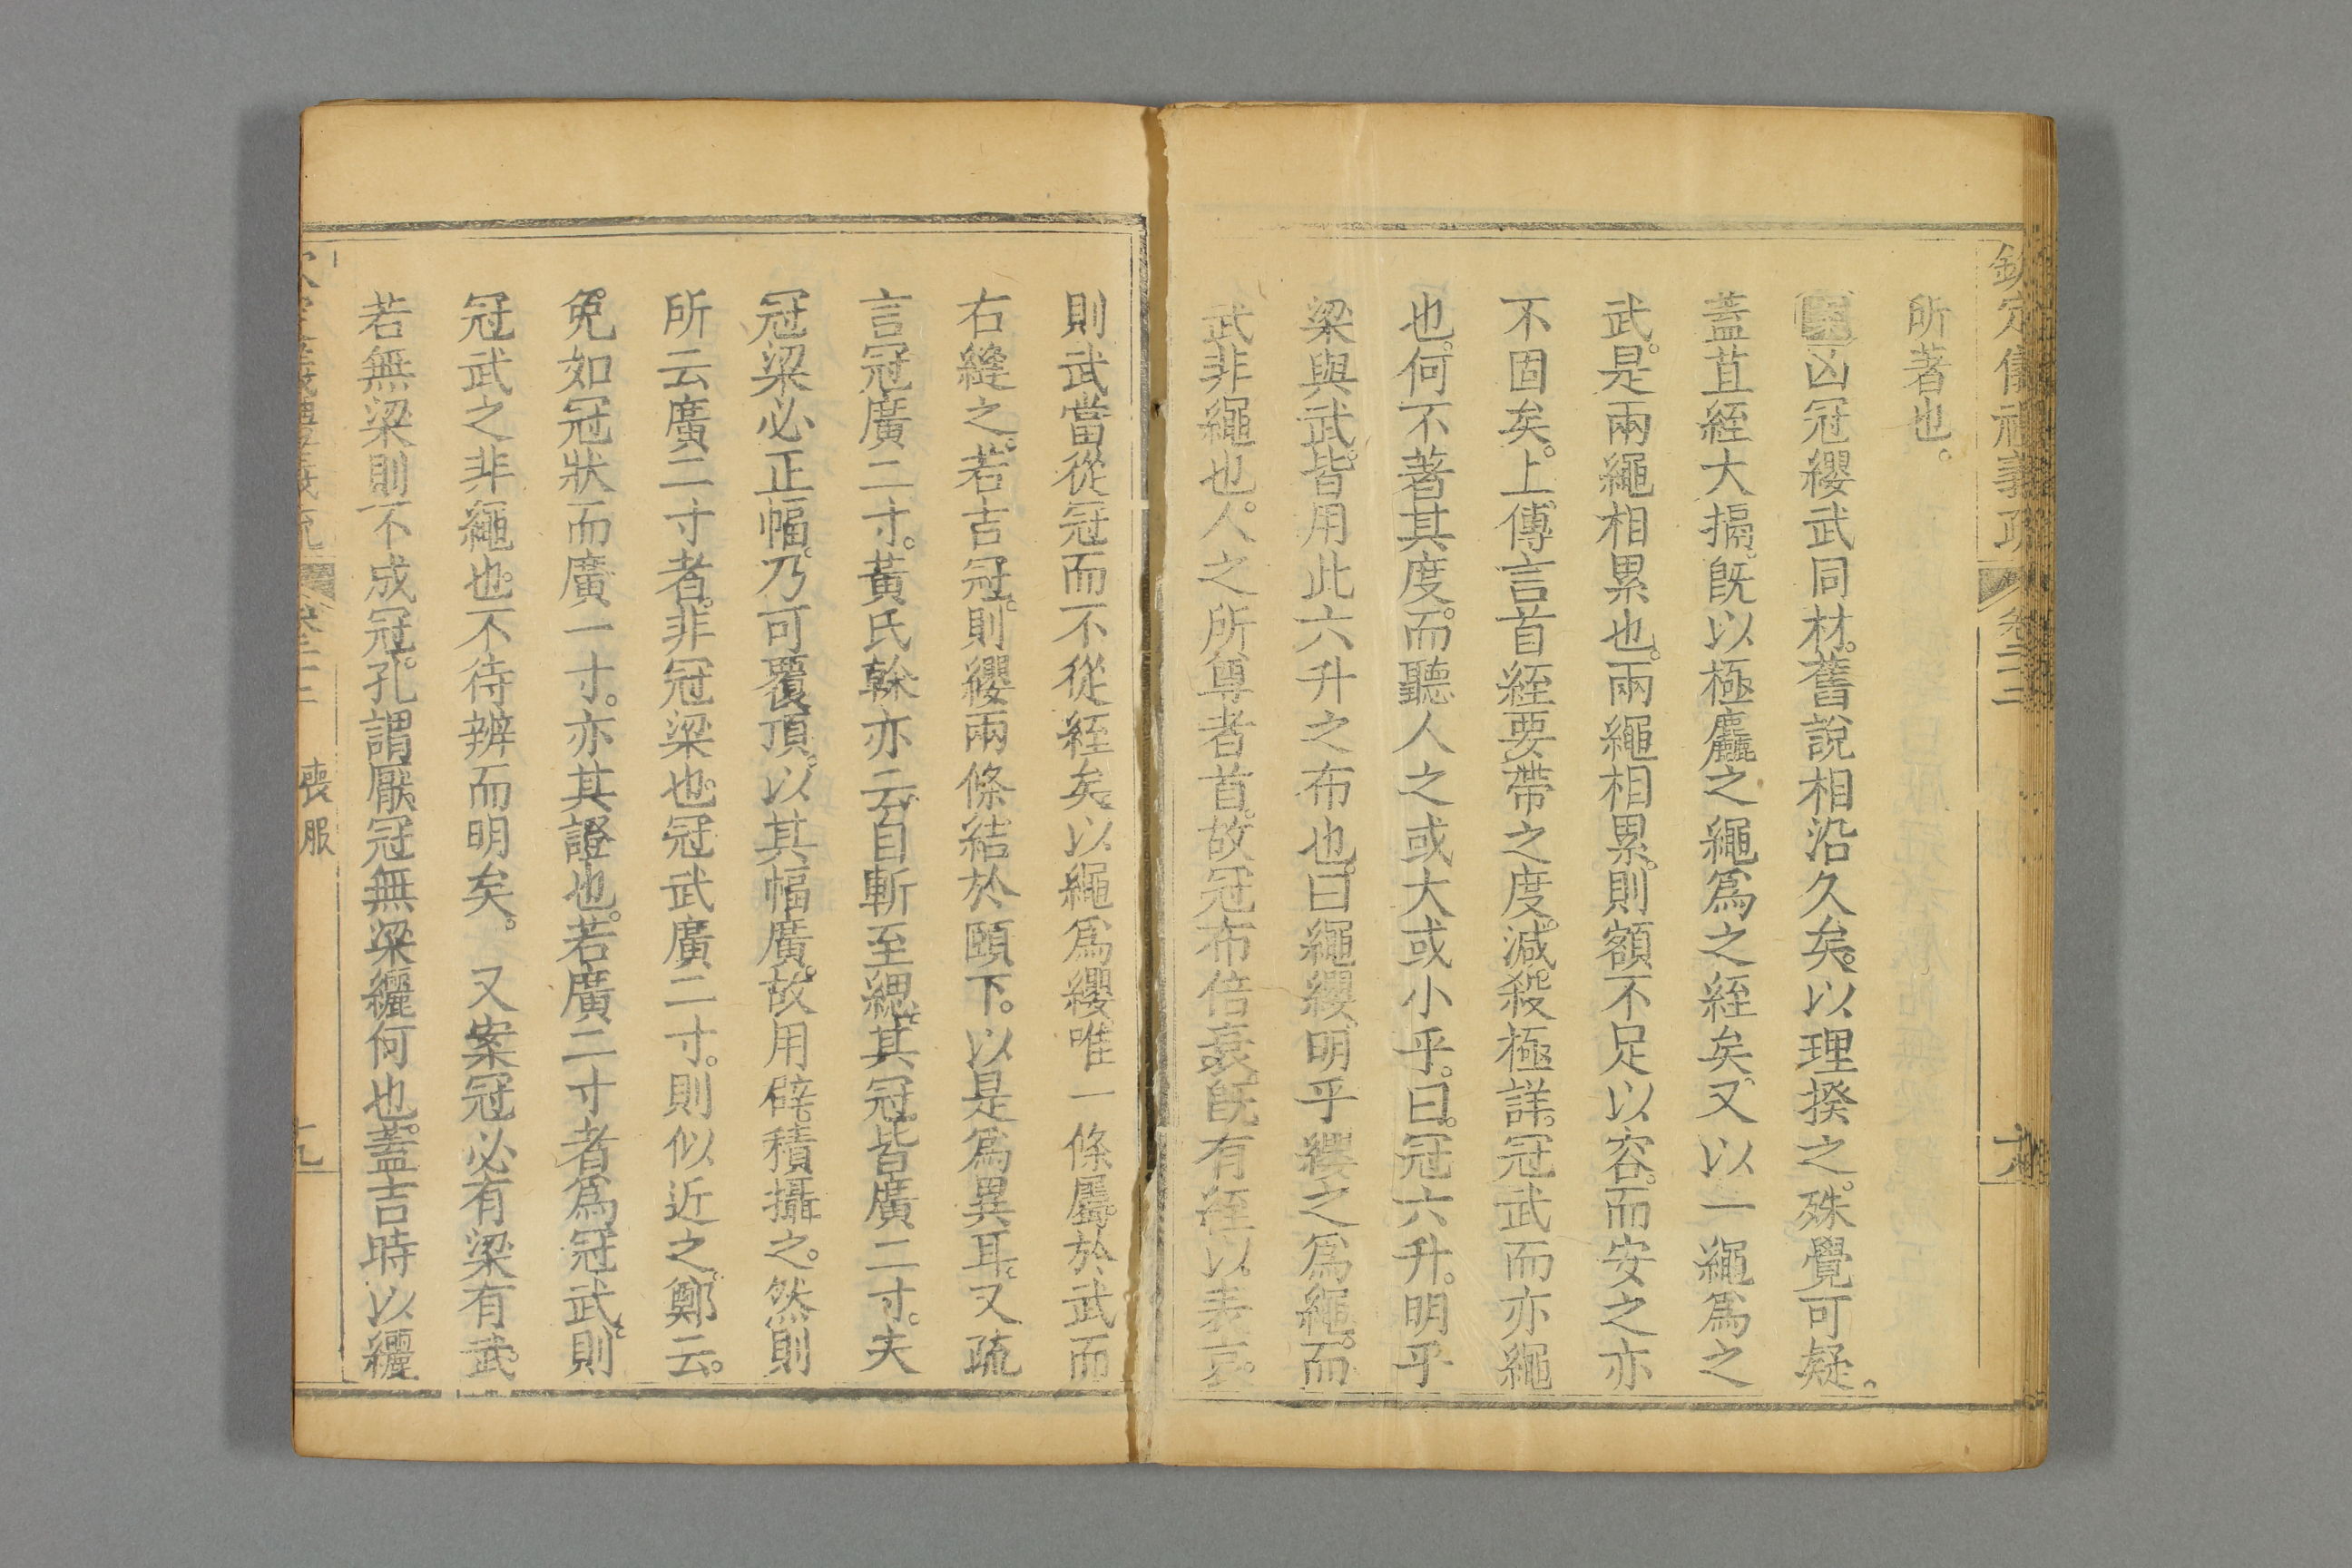 欽定儀禮義疏 卷二十二 十八
所著也。
案凶冠纓武同材。舊說相沿久矣。以理揆之。殊覺可疑。
蓋苴絰大搹。旣以極麤之繩爲之絰矣。又以一繩爲之
武。是兩繩相累也。兩繩相累。則額不足以容。而安之亦
不固矣。上傳言首絰要帶之度。減殺極詳。冠武而亦繩
也。何不著其度。而聽人之或大或小乎。曰。冠六升。明乎
梁與武。皆用此六升之布也。曰繩纓。明乎纓之爲繩。而
武非繩也。人之所尊者首。故冠布倍衰。旣有絰以表哀。
則武當從冠而不從絰矣。以繩爲纓。唯一條屬於武而
右縫之。若吉冠。則纓兩條結於頤下。以是爲異耳。又疏
言冠廣二寸。黃氏榦亦云。自斬至緦。其冠皆廣二寸。夫
冠梁必正幅。乃可覆頂。以其幅廣。故用辟積攝之。然則
所云廣二寸者。非冠梁也。冠武廣二寸。則似近之。鄭云。
免如冠狀而廣一寸。亦其證也。若廣二寸者爲冠武。則
冠武之非繩也。不待辨而明矣。 又案冠必有梁有武。
若無梁則不成冠。孔謂厭冠無梁纚何也。蓋吉時以纚
喪服